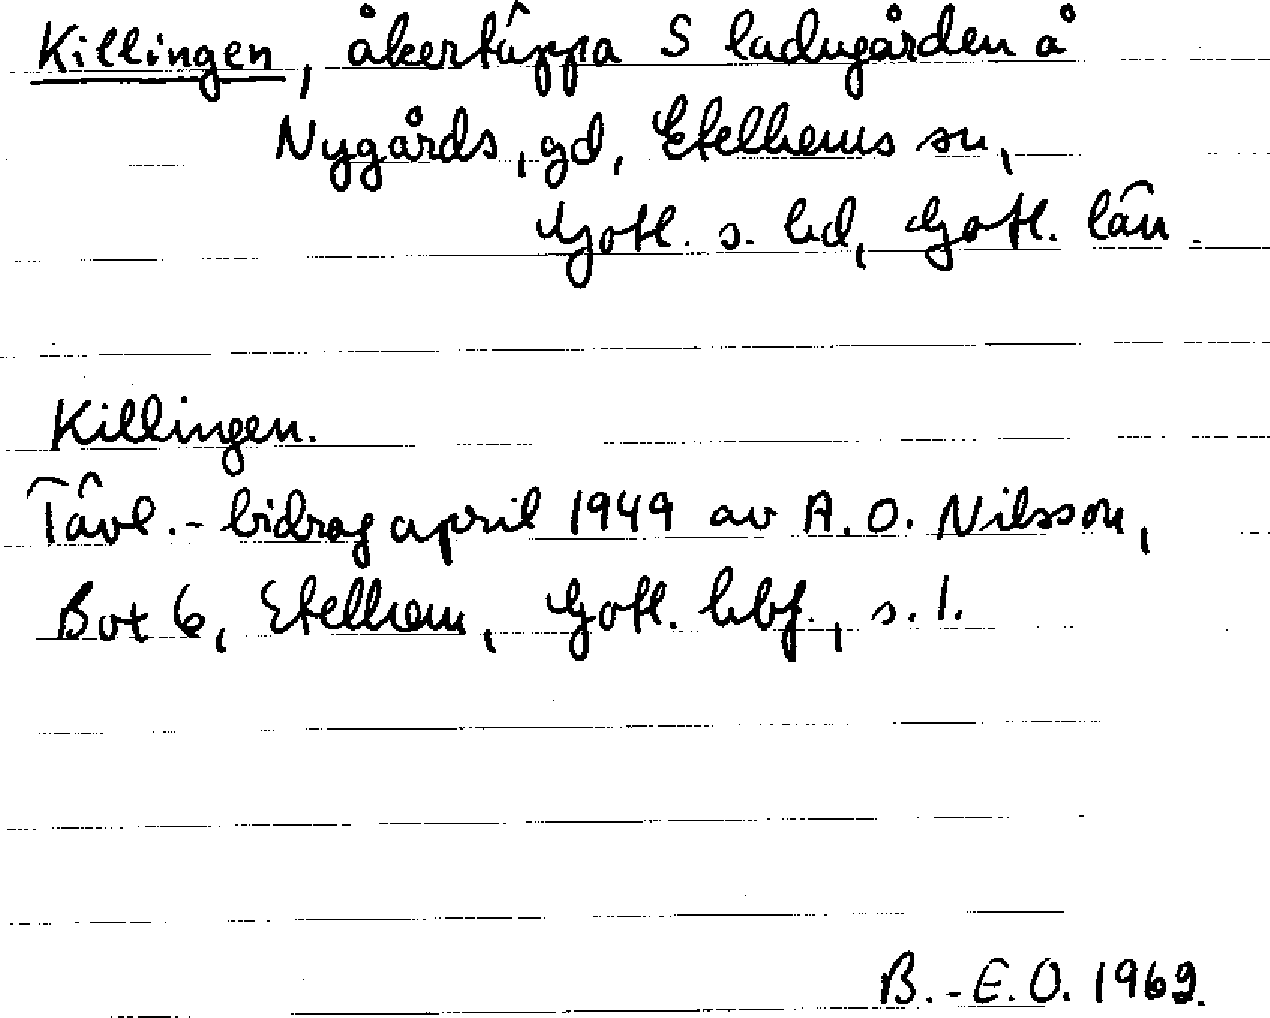 Killingen, åkertäppa S ladugården å
Nygårds, gd, Etelhems sn,
Gotl. s. hd, Gotl. län.
Killingen.
Tävl.-bidrag april 1949 av A.O. Nilsson,
Box 6, Etelhem, Gotl. hbf., s. 1.
B.-E.O. 1969.